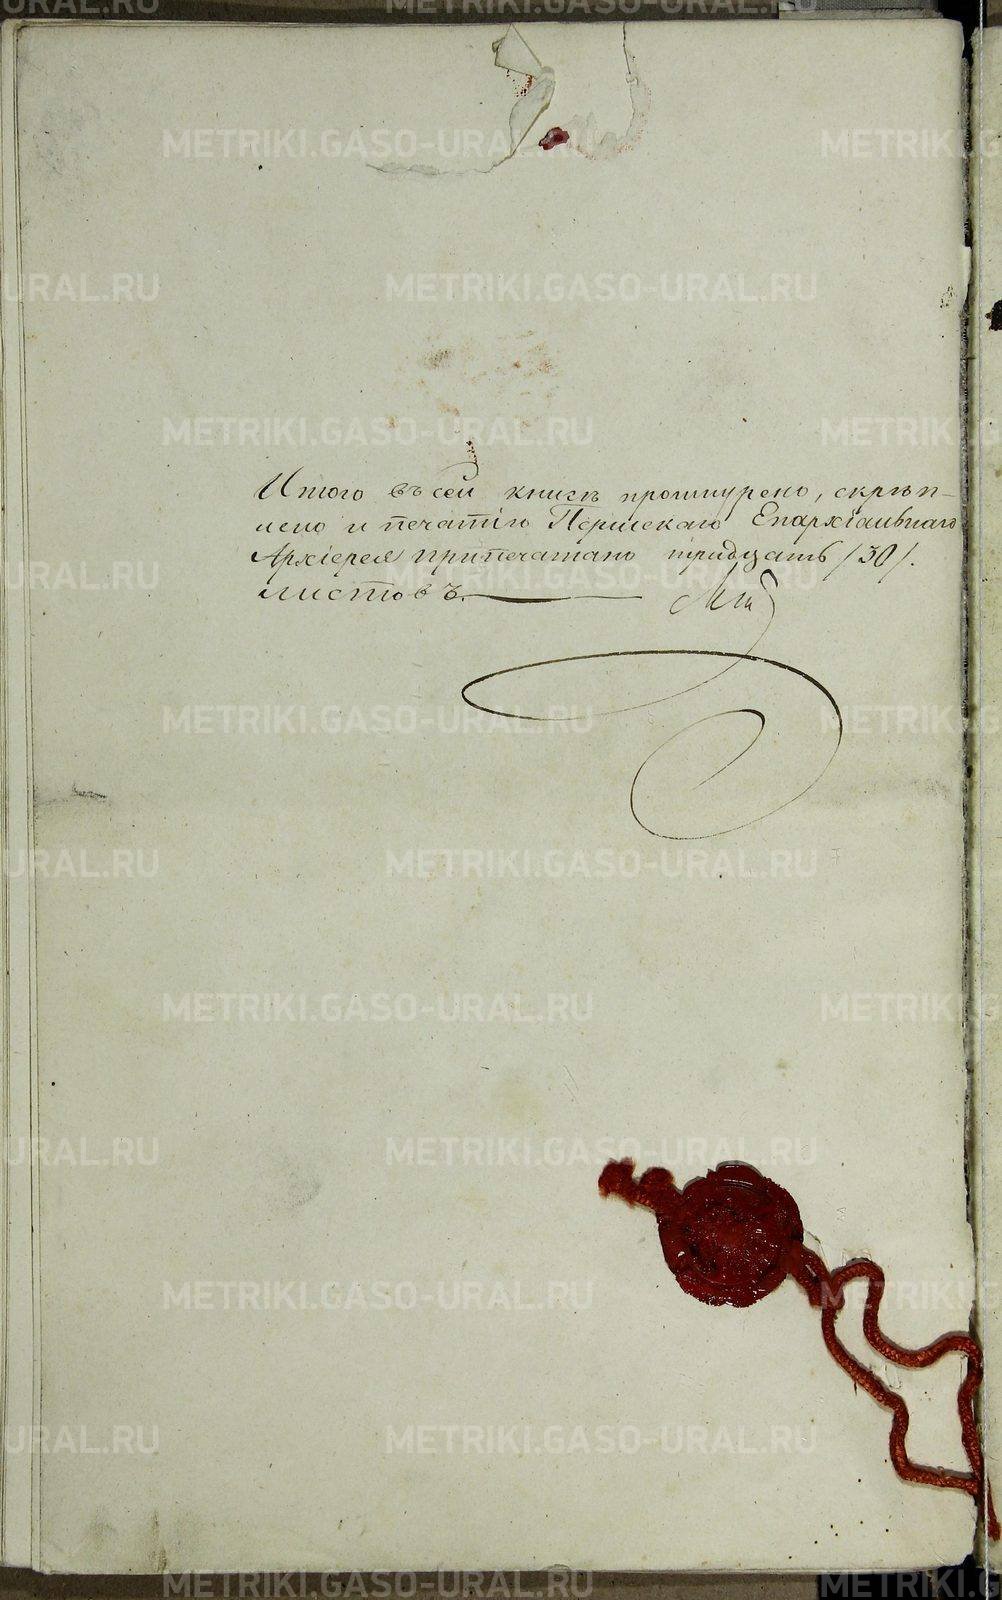 Итого въ сей книгѣ прошнурено, скрѣп-
лено и печатiю Пермскаго Епархiальнаго
Архiерея припечатано тридцать /30/.
листовъ.
METRIKI.GASO-URAL.RU